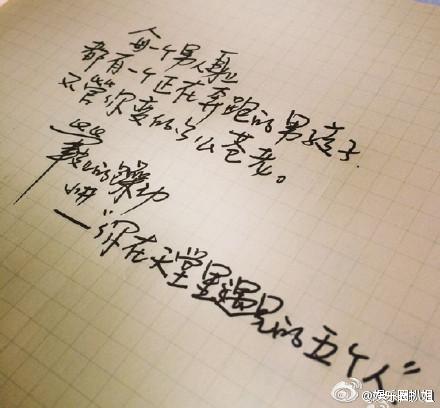 每一个男人
都有一个正在奔跑的男孩子
不管你变的多么苍老。
的躁动
—“你在天堂里遇见的五个人”
@娱乐圈扒姐